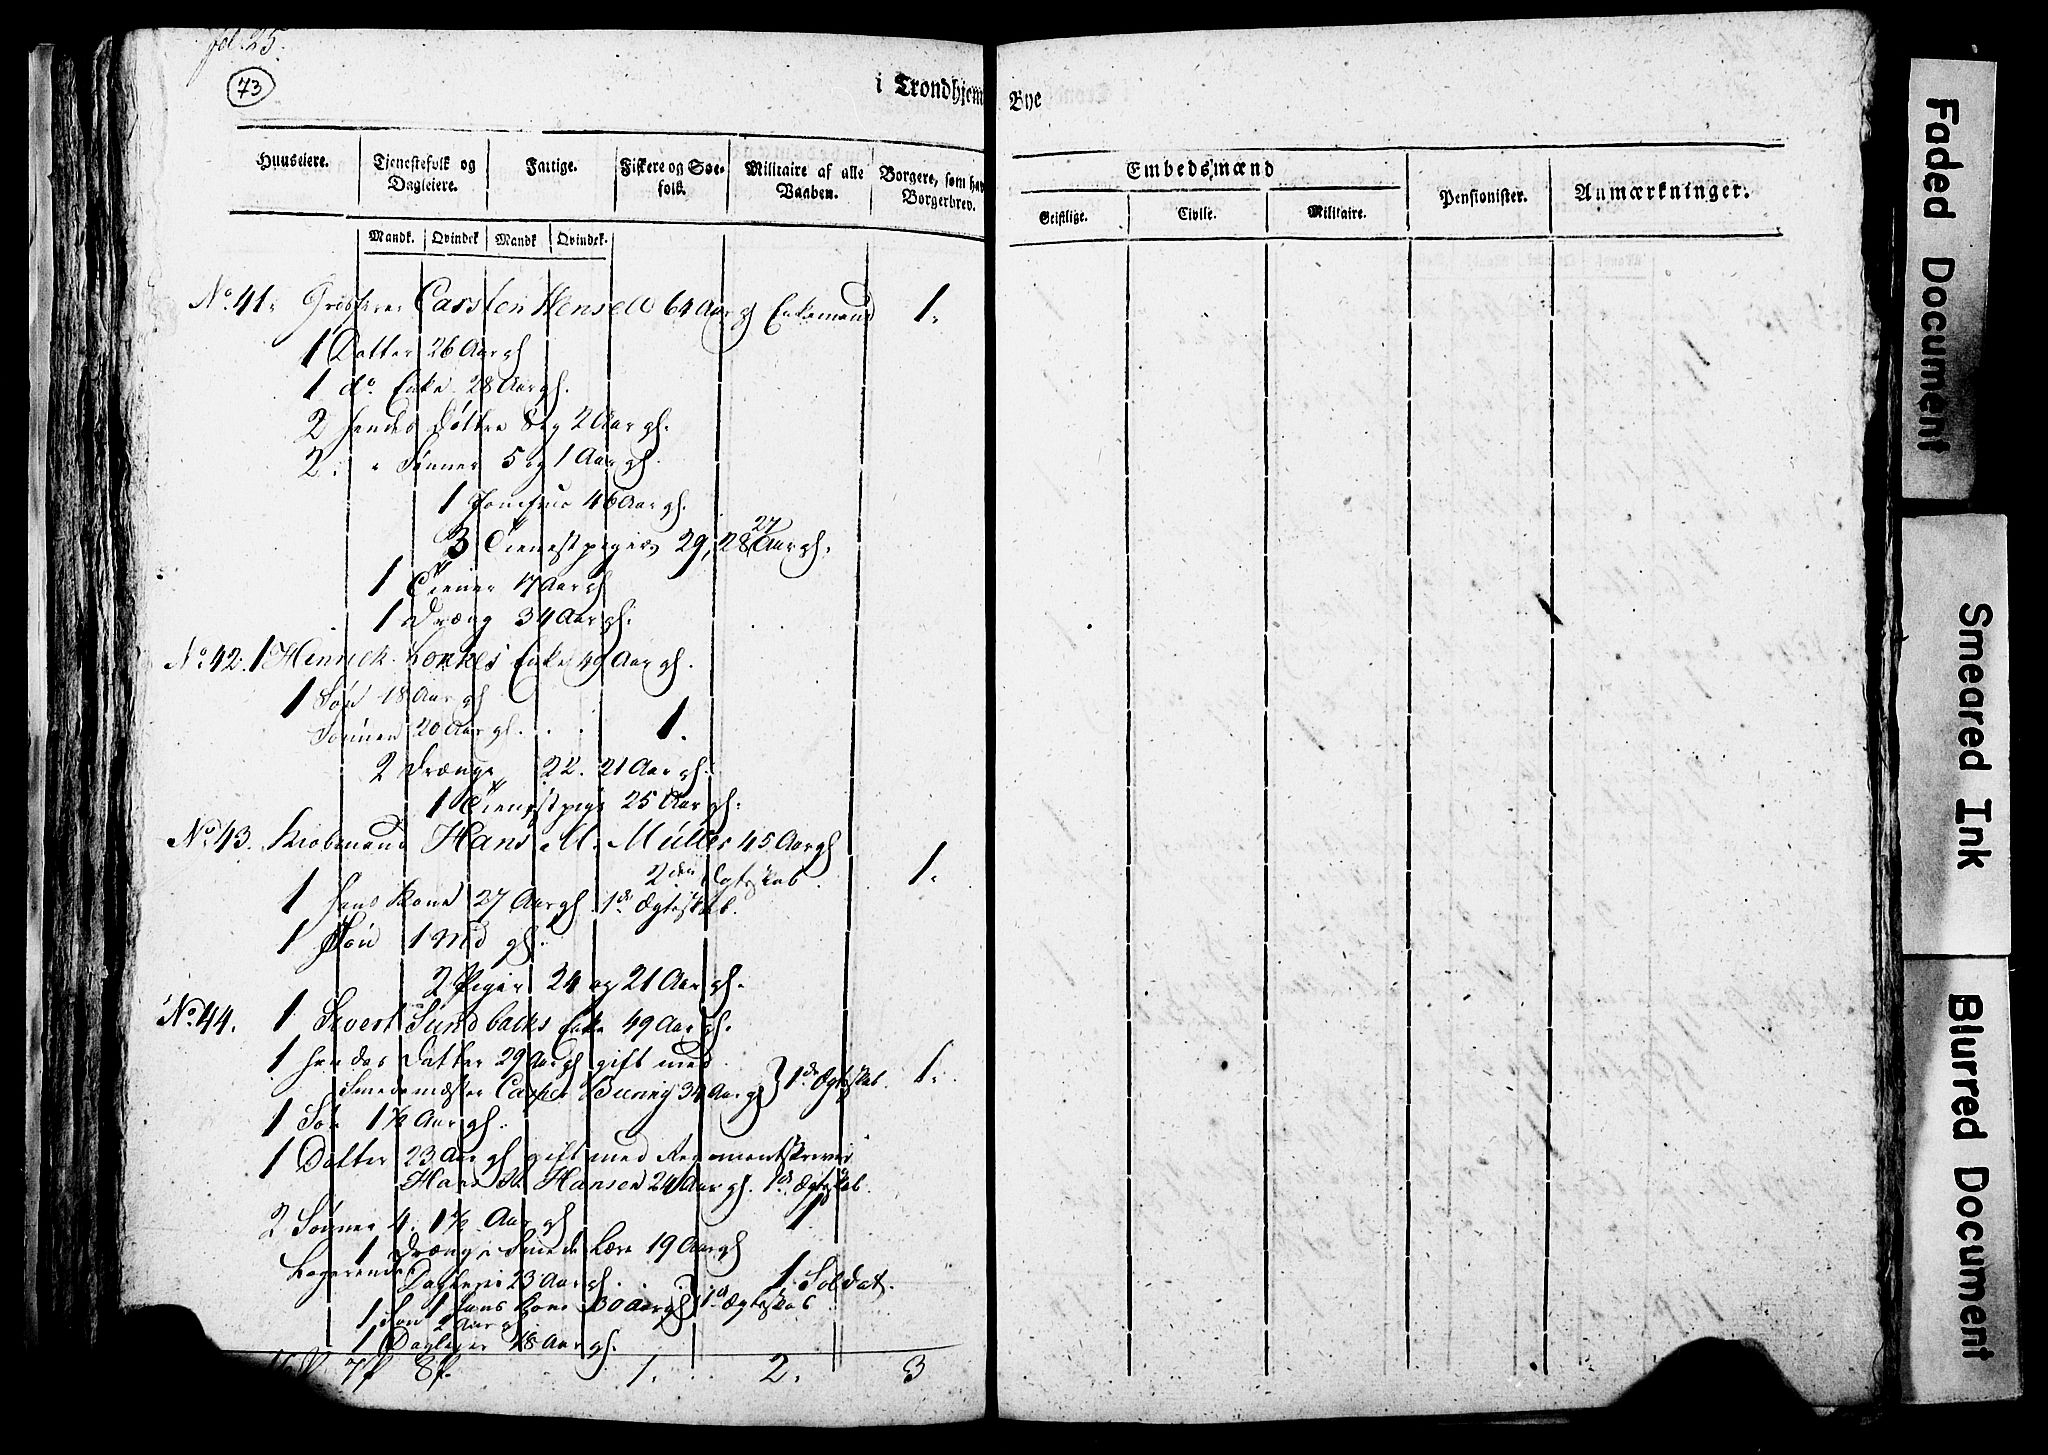 fol. 25.
73
i Trondhjems Bye
Huuseiere. Tienestefolk og Dagleiere. Fattige. Fiskere og Søe-folk. Militaire af alle Vaaben. Borgere, som have Borgerbrev.
Mandk. Qvindek Mandk Qvindek.
Embedsmænd
Geistlige. Civile. Militaire. Pensionister. Anmærkninger.
No. 41. Carsten Hensell 64 Aar gl Enkemand 1.
1 Datter 26 Aar gl
1 do. Enke 28 Aar gl.
2 hendes Døttre 8 og 2 Aar gl.
2. " Sønner 5 og 1 Aar gl.
1 Jomfrue 46 Aar gl.
27
3 Tienestpiger 29, 28 Aar gl.
1 Tiener 17 Aar gl
1 Dræng 34 Aar gl.
No. 42. 1 Hinrich Enke 49 Aar gl.
1 Søn 18 Aar gl
20 Aar gl. 1.
2 Drænge 22. 21 Aar gl.
1 Tienestpige 25 Aar gl.
No. 43. Kiøbmand Hans M. Müller 45 Aar gl
2den Ægteskab 1.
1 hans Kone 27 Aar gl. 1de Ægteskab.
1 Søn 1 Md gl.
2 Piger 24 og 21 Aar gl.
No. 44. 1 Sivert Sundbacks Enke 49 Aar gl.
1 hendes Datter 29 Aar gl gift med
Smedemæster Casper Buung 34 Aar gl } 1de Ægteskab. 1.
1 Søn 1½ Aar gl.
1 Datter 23 Aar gl gift med Regimentskriver
Hans K. Hansen 24 Aar gl. 1de Ægteskab.
1
2 Sønner 4. 1½ Aar gl
1 Dræng i Smede Lære 19 Aar gl
Logerende
23 Aar gl. 1 Soldat.
1 hans Kone 30 Aar gl } 1de Ægteskab
1 Søn 2 Aar gl
1 Dagleier 48 Aar gl.
7 p 8 p. 1. 2. 3
Faded Document
Smeared Ink
Blurred Document